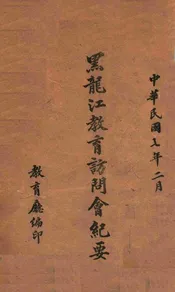 中華民國七年二月
黑龍江教育訪問會紀要
教育廳編印